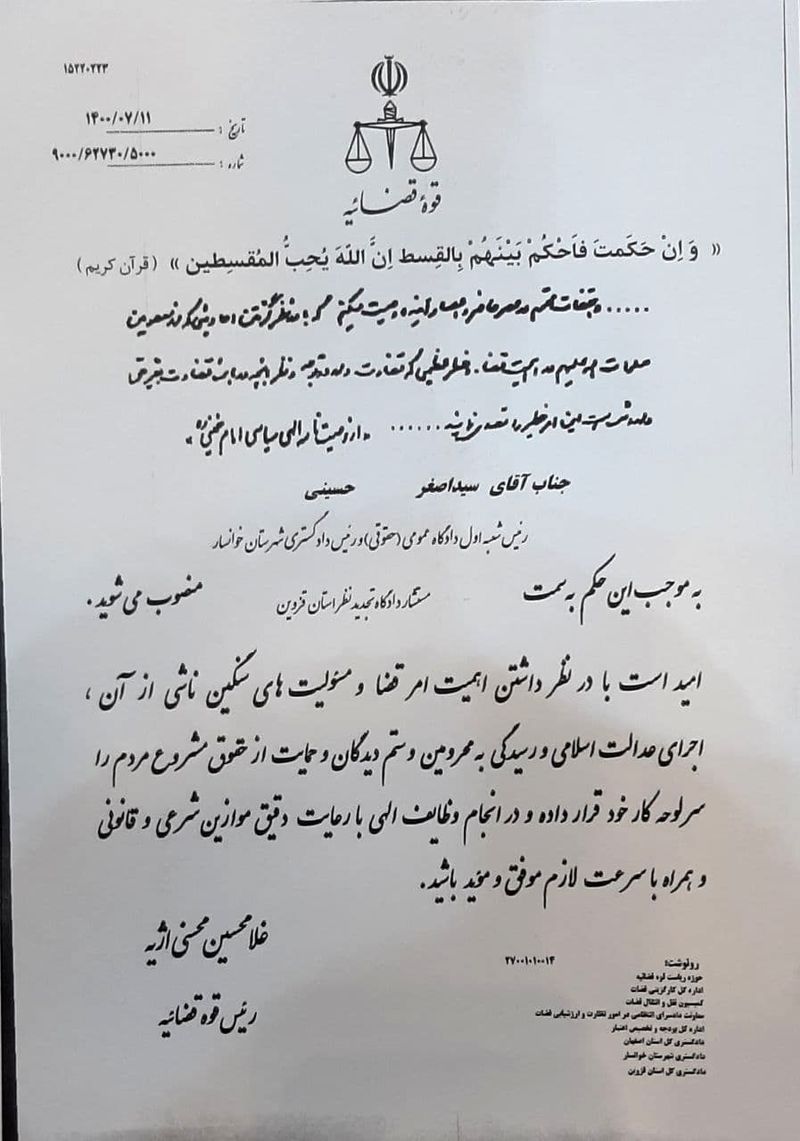 ۱۵۲۲۰۲۲۳
تاریخ : ۱۴۰۰/۰۷/۱۱
شماره : ۹۰۰۰/۶۲۷۳۰/۵۰۰۰
قوهٔ قضائیه
« وَ اِنْ حَکَمتَ فاَحْکُمْ بَیْنَهُمْ بِالقِسط اِنَّ اللّهَ یُحِبُّ المُقسِطین » (قرآن کریم)
..... و بقضات محترم در عصر حاضر و اعصار آینده وصیت میکنم که با در نظر گرفتن احادیثی که از معصومین
صلوات الله علیهم در اهمیت قضا و خطر عظیمی که قضاوت دارد و توجه و نظر بآنچه درباره قضاوت بغیر حق
وارد شده است این امر خطیر را تصدی نمایند ...... «از وصیتنامه الهی سیاسی امام خمینی ره»
جناب آقای سیداصغر حسینی
رئیس شعبه اول دادگاه عمومی (حقوقی) و رئیس دادگستری شهرستان خوانسار
به موجب این حکم به سمت مستشار دادگاه تجدید نظر استان قزوین منصوب می شوید .
امید است با در نظر داشتن اهمیت امر قضا و مسئولیت های سنگین ناشی از آن ،
اجرای عدالت اسلامی و رسیدگی به محرومین و ستم دیدگان و حمایت از حقوق مشروع مردم را
سرلوحه کار خود قرار داده و در انجام وظایف الهی با رعایت دقیق موازین شرعی و قانونی
و همراه با سرعت لازم موفق و مؤید باشید .
غلامحسین محسنی اژیه
رئیس قوه قضائیه
۲۷۰۰۱۰۱۰۰۱۴
رونوشت:
حوزه ریاست قوه قضائیه
اداره کل کارگزینی قضات
کمیسیون نقل و انتقال قضات
معاونت دادسرای انتظامی در امور نظارت و ارزشیابی قضات
اداره کل بودجه و تخصیص اعتبار
دادگستری کل استان اصفهان
دادگستری شهرستان خوانسار
دادگستری کل استان قزوین